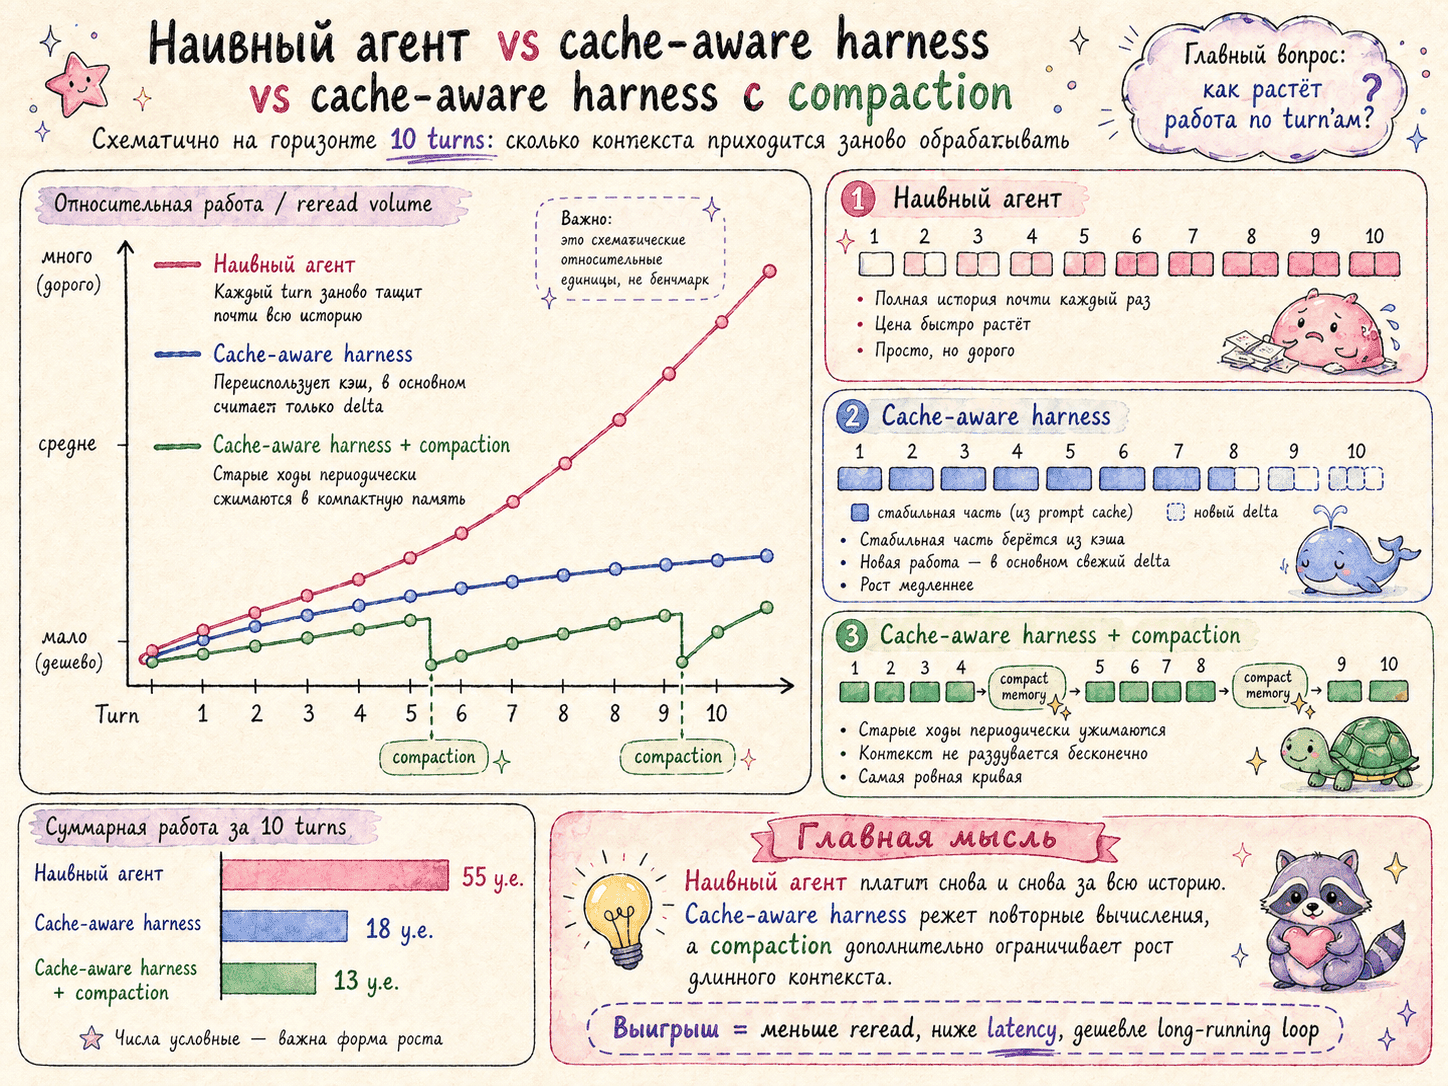 Наивный агент vs cache-aware harness
vs cache-aware harness с compaction
Схематично на горизонте 10 turns: сколько контекста приходится заново обрабатывать
Главный вопрос:
как растёт
работа по turn'ам?
?
Относительная работа / reread volume
много
(дорого)
средне
мало
(дешево)
Наивный агент
Каждый turn заново тащит
почти всю историю
Cache-aware harness
Переиспользует кэш, в основном
считает только delta
Cache-aware harness + compaction
Старые ходы периодически
сжимаются в компактную память
Важно:
это схематические
относительные
единицы, не бенчмарк
Turn 1 2 3 4 5 6 7 8 8 9 10
compaction
compaction
1 Наивный агент
1 2 3 4 5 6 7 8 9 10
• Полная история почти каждый раз
• Цена быстро растёт
• Просто, но дорого
2 Cache-aware harness
1 2 3 4 5 6 7 8 9 10
стабильная часть (из prompt cache) новый delta
• Стабильная часть берётся из кэша
• Новая работа — в основном свежий delta
• Рост медленнее
3 Cache-aware harness + compaction
1 2 3 4 5 6 7 8 9 10
compact
memory
compact
memory
• Старые ходы периодически ужимаются
• Контекст не раздувается бесконечно
• Самая ровная кривая
Суммарная работа за 10 turns
Наивный агент 55 у.е.
Cache-aware harness 18 у.е.
Cache-aware harness
+ compaction
13 у.е.
Числа условные — важна форма роста
Главная мысль
Наивный агент платит снова и снова за всю историю.
Cache-aware harness режет повторные вычисления,
а compaction дополнительно ограничивает рост
длинного контекста.
Выигрыш = меньше reread, ниже latency, дешевле long-running loop